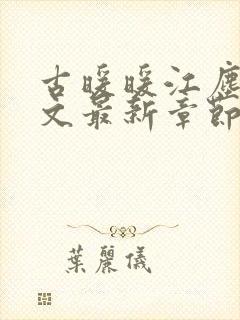 古暖暖江塵
文最新章節
葉麗儀